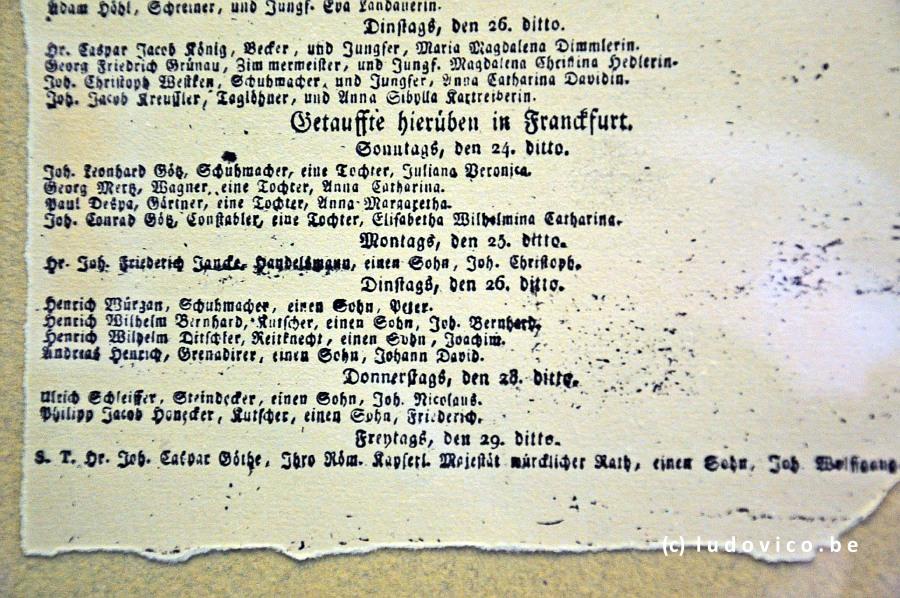 Adam Höhl, Schreiner, und Jungf. Eva Landauerin.
Dinstags, den 26. ditto.
Hr. Caspar Jacob König, Becker, und Jungfer, Maria Magdalena Dimmlerin.
Georg Friedrich Grünau, Zimmermeister, und Jungf. Magdalena Christina Hedlerin.
Joh. Christoph Westken, Schuhmacher, und Jungfer, Anna Catharina Davidin.
Joh. Jacob Kreussler, Taglöhner, und Anna Sibylla Kartreiberin.
Getauffte hierüben in Franckfurt.
Sonntags, den 24. ditto.
Joh. Leonhard Götz, Schuhmacher, eine Tochter, Juliana Veronica.
Georg Mertz, Wagner, eine Tochter, Anna Catharina.
Paul Despa, Gärtner, eine Tochter, Anna Margaretha.
Joh. Conrad Götz, Constabler, eine Tochter, Elisabetha Wilhelmina Catharina.
Montags, den 25. ditto.
Hr. Joh. Friederich Jancke, Handelsmann, einen Sohn, Joh. Christoph.
Dinstags, den 26. ditto.
Henrich Würzan, Schuhmacher, einen Sohn, Peter.
Henrich Wilhelm Bernhard, Kutscher, einen Sohn, Joh. Bernhard.
Henrich Wilhelm Ditschler, Reitknecht, einen Sohn, Joachim.
Andreas Henrich, Grenadirer, einen Sohn, Johann David.
Donnerstags, den 28. ditto.
Ulrich Schleiffer, Steindecker, einen Sohn, Joh. Nicolaus.
Philipp Jacob Honecker, Kutscher, einen Sohn, Friederich.
Freytags, den 29. ditto.
S. T. Hr. Joh. Caspar Göthe, Ihro Röm. Kayserl. Majestät würcklicher Rath, einen Sohn, Joh. Wolffgang
(c) ludovico.be